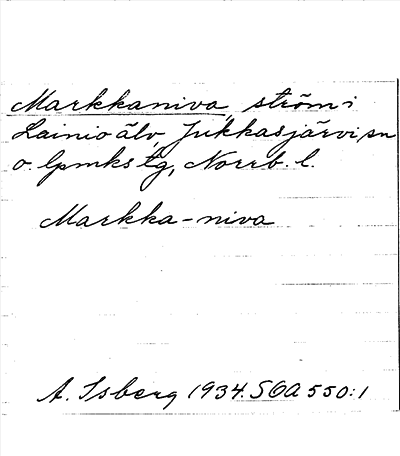 Markkaniva, ström i
Lainio älv, Jukkasjärvi sn
o. lpmks tg, Norrb. l.
Markka-niva
A. Isberg 1934. SOA 550:1